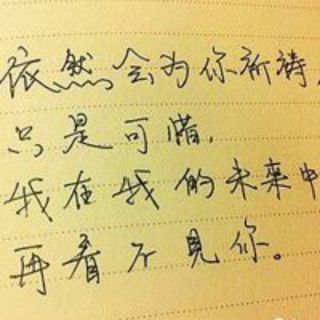 依然会为你祈祷，
只是可惜，
我在我的未来中
再看不見你。